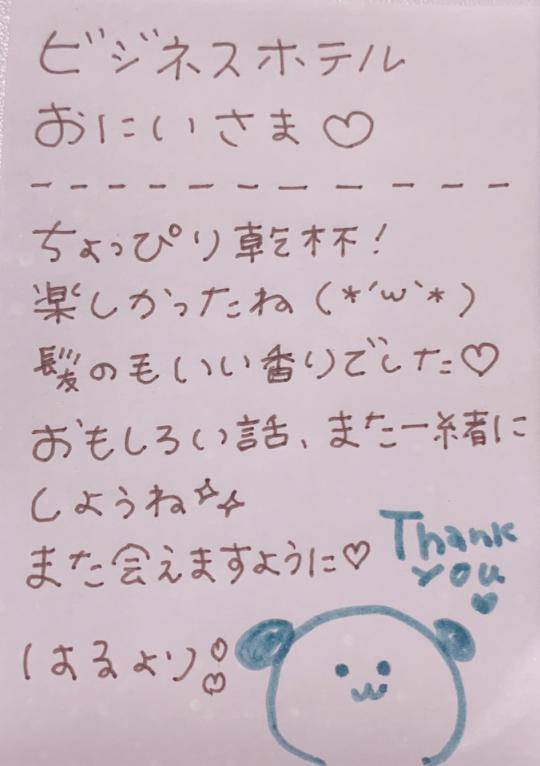 ビジネスホテル
おにいさま♡
ー ー ー ー ー ー ー ー ー ー ー ー
ちょっぴり乾杯!
楽しかったね(*´ω`*)
髪の毛いい香りでした♡
おもしろい話、また一緒に
しようね✧✧
また会えますように♡
Thank
you♥
はるより♡♡